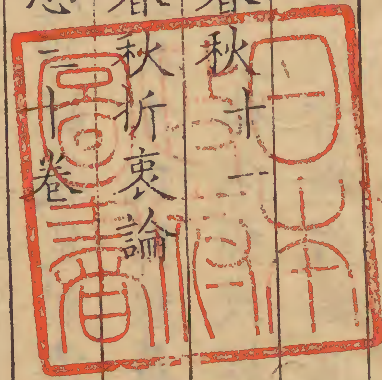 春秋十一
春秋折衷論
三十卷
日本
政府
圖書